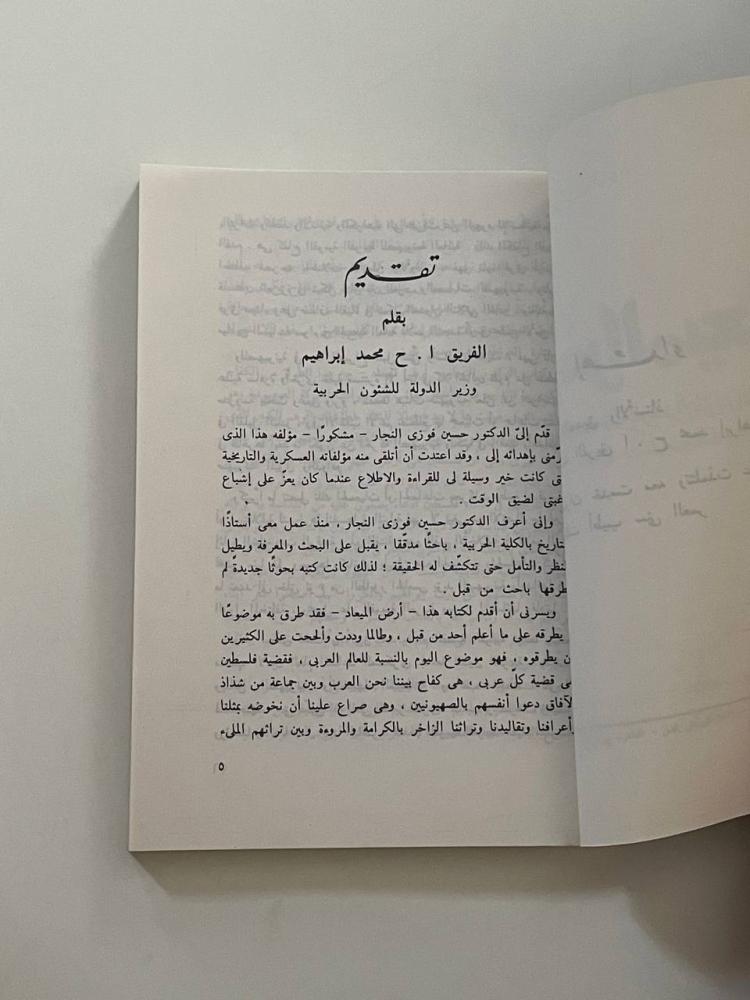 تقديم
بقلم
الفريق ا . ح محمد إبراهيم
وزير الدولة للشئون الحربية
قدّم إلىّ الدكتور حسين فوزى النجار – مشكورًا – مؤلفه هذا الذى
بإهدائه إلى ، وقد اعتدت أن أتلقى منه مؤلفاته العسكرية والتاريخية
كانت خير وسيلة لى للقراءة والاطلاع عندما كان يعزّ على إشباع
لضيق الوقت .
وإنى أعرف الدكتور حسين فوزى النجار ، منذ عمل معى أستاذًا
بالكلية الحربية ، باحثًا مدققا ، يقبل على البحث والمعرفة ويطيل
والتأمل حتى تتكشّف له الحقيقة ؛ لذلك كانت كتبه بحوثًا جديدةً لم
باحث من قبل .
ويسرنى أن أقدم لكتابه هذا – أرض الميعاد – فقد طرق به موضوعًا
يطرقه على ما أعلم أحد من قبل ، وطالما وددت وألححت على الكثيرين
يطرقوه ، فهو موضوع اليوم بالنسبة للعالم العربى ، فقضية فلسطين
قضية كلّ عربى ، هى كفاح بيننا نحن العرب وبين جماعة من شذاذ
دعوا أنفسهم بالصهيونيين ، وهى صراع علينا أن نخوضه بمثلنا
وأعرافنا وتقاليدنا وتراثنا الزاخر بالكرامة والمروءة وبين تراثهم الملىء
٥